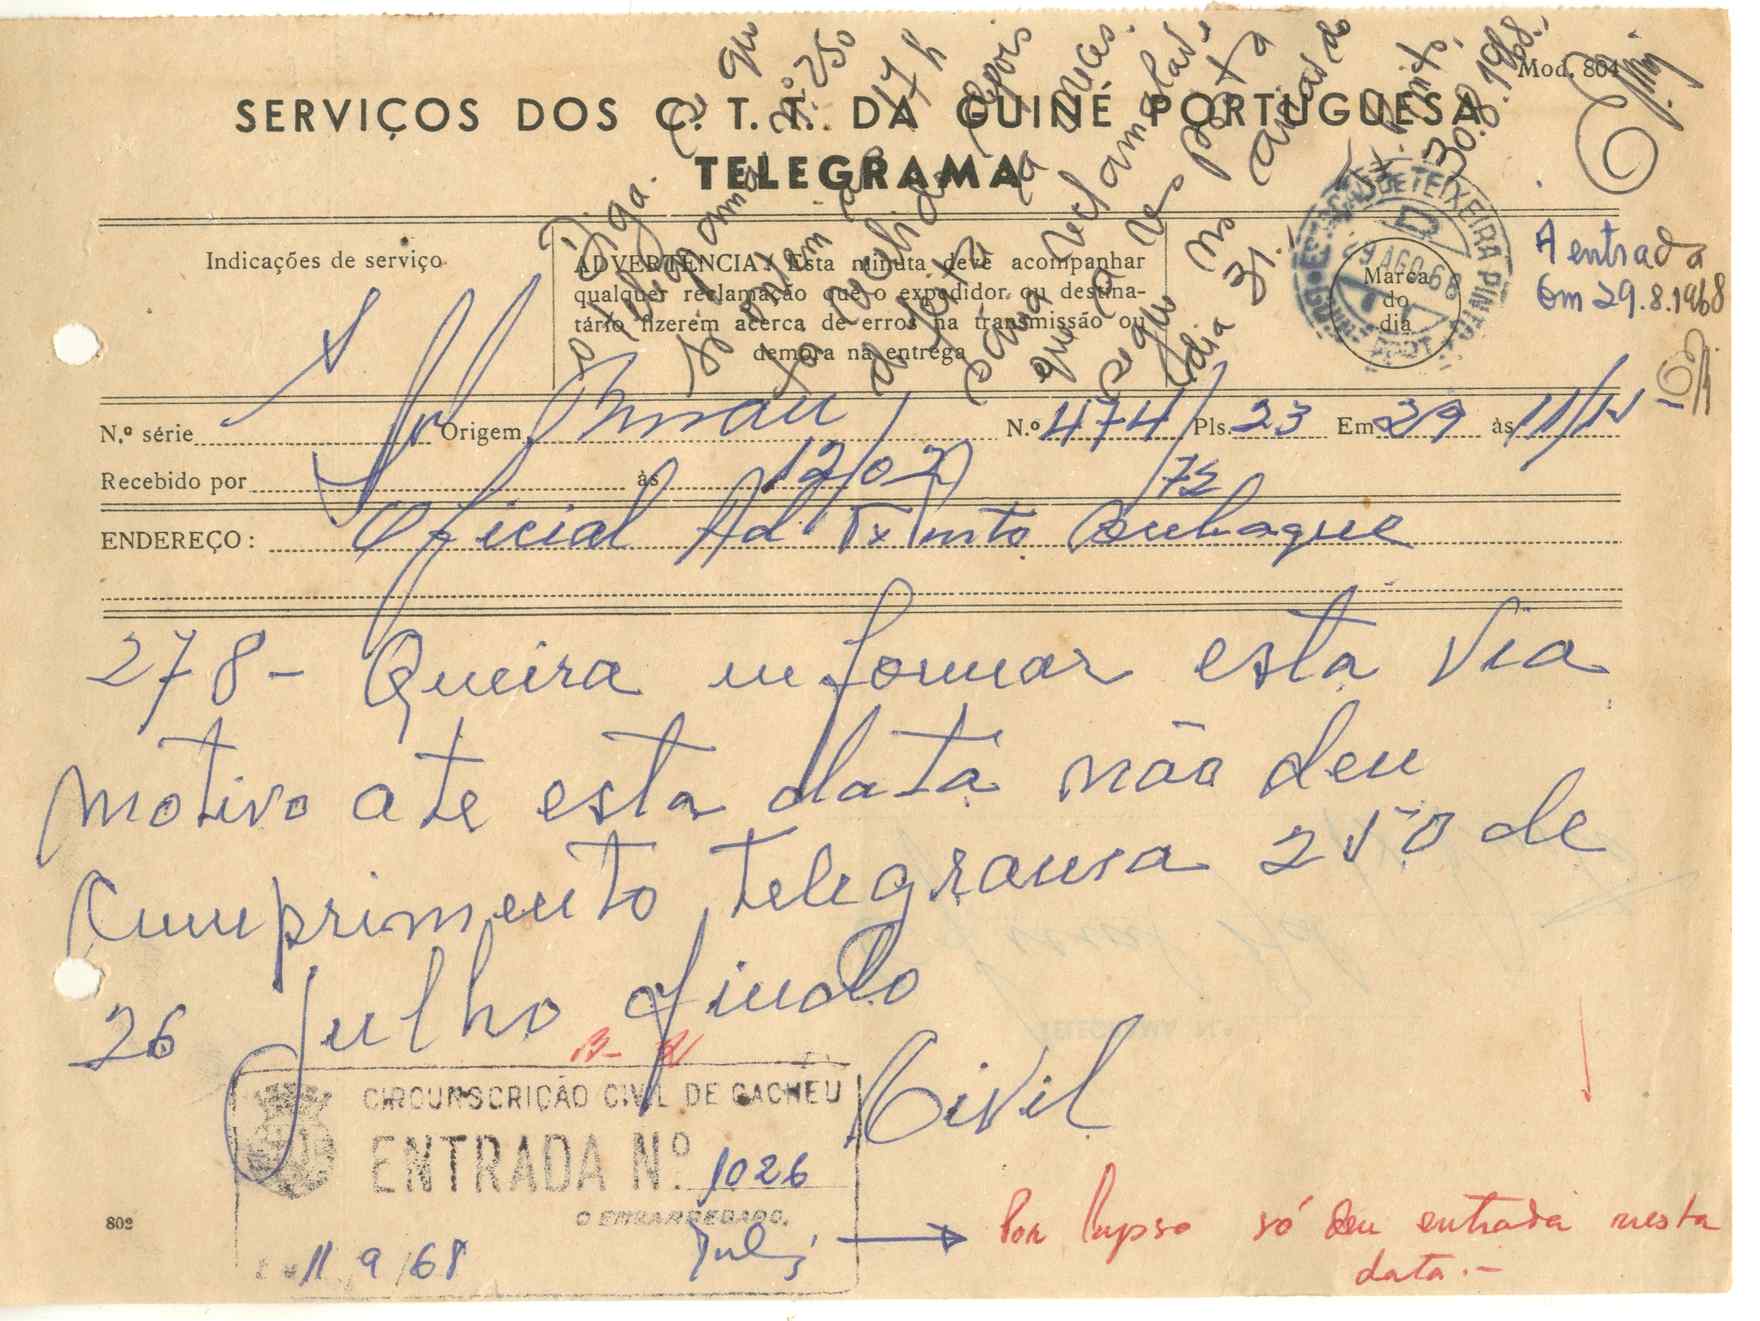 Mod. 804
SERVIÇOS DOS C. T. T. DA GUINÉ PORTUGUESA
TELEGRAMA
Diga. que
o telegrama nº 250
17 h
recebido depois
da
para reclamar
que o
segue no avião do
dia 31.
T. Pinto,
30.8.1968.
Indicações de serviço
ADVERTÊNCIA: Esta minuta deve acompanhar
qualquer reclamação que o expedidor ou destina-
tário fizerem acerca de erros na transmissão ou
demora na entrega
ESTAÇÃO DE TEIXEIRA PINTO
29 AGO. 68
Marca
do
dia
A entrada
Em 29.8.1968
N.º série Origem Bissau N.º 474/ Pls. 23 Em 29 às 11/
Recebido por às 12/02 /72
ENDEREÇO: Oficial Ad. Tx Pinto Canhaque
278 - Queira informar esta via
motivo ate esta data não deu
cumprimento telegrama 250 de
26 Julho findo
Civil
CIRCUNSCRIÇÃO CIVIL DE CACHEU
ENTRADA N.º 1026
O ENCARREGADO,
11/9/68
Por lapso só deu entrada nesta
data.-
802